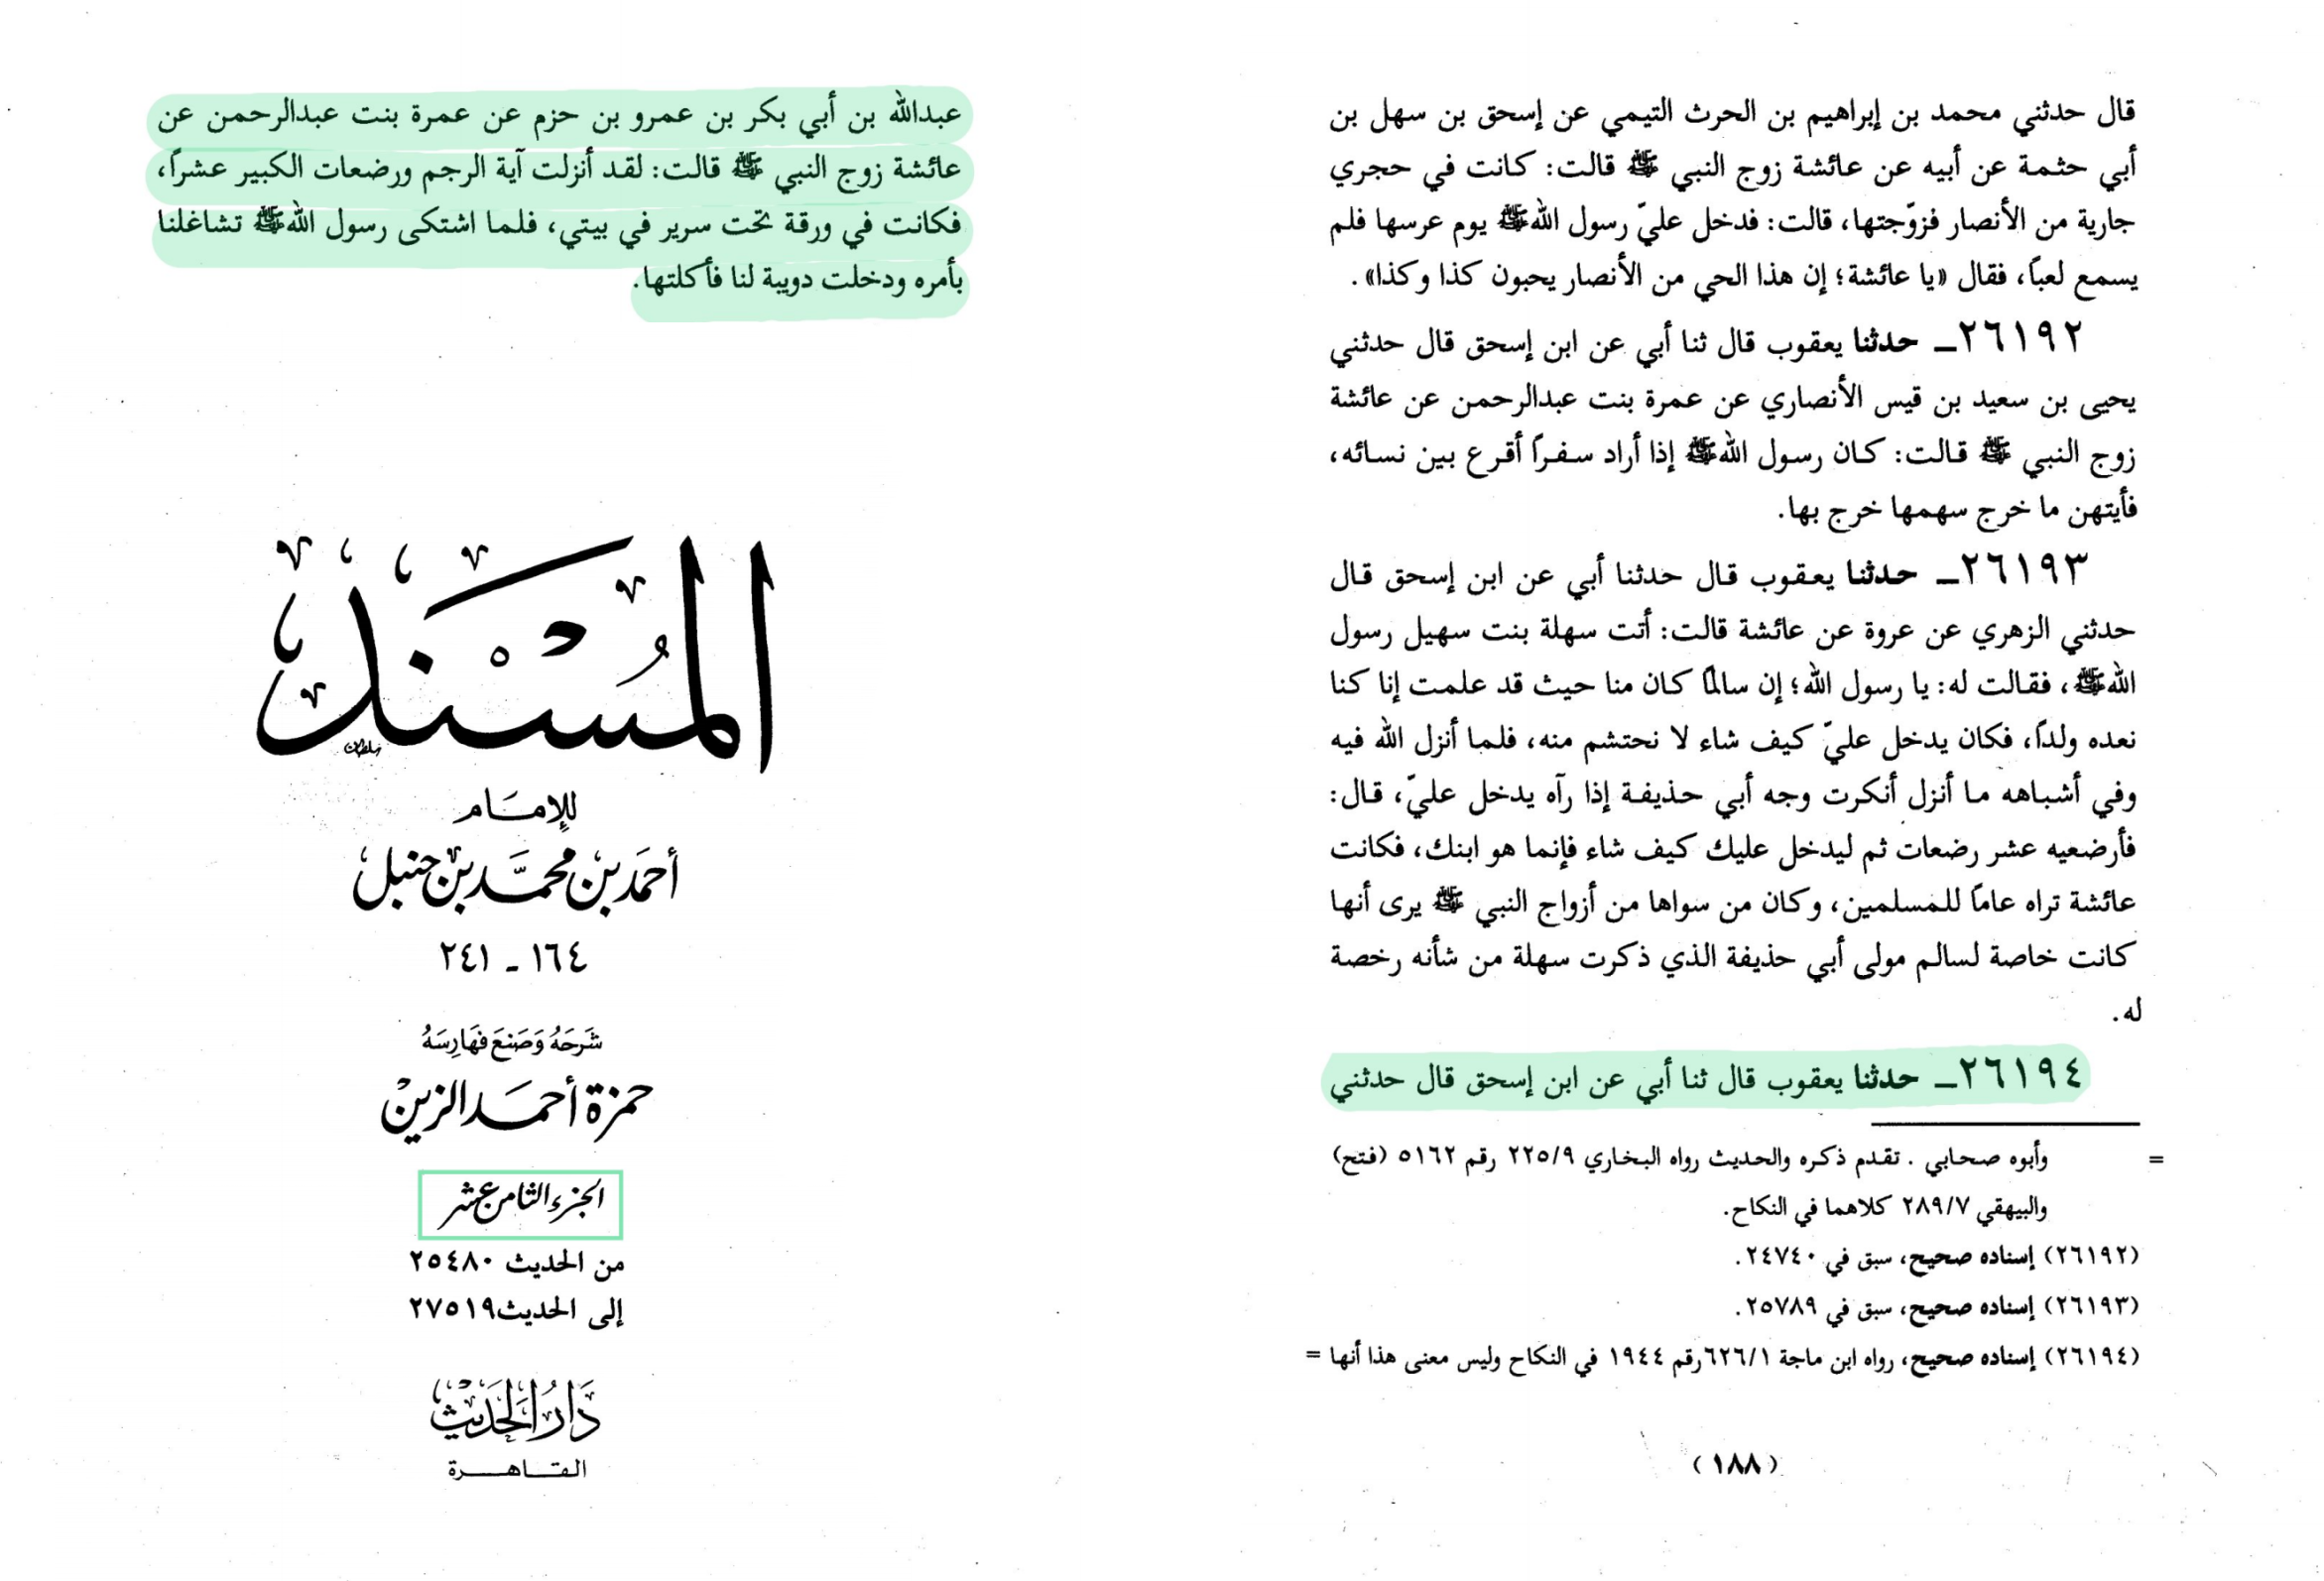 قال حدثني محمد بن إبراهيم بن الحرث التيمي عن إسحق بن سهل بن
أبي حثمة عن أبيه عن عائشة زوج النبي ﷺ قالت: كانت في حجري
جارية من الأنصار فزوّجتها، قالت: فدخل عليّ رسول اللهﷺ يوم عرسها فلم
يسمع لعباً، فقال «يا عائشة؛ إن هذا الحي من الأنصار يحبون كذا وكذا».
٢٦١٩٢ــ حدثنا يعقوب قال ثنا أبي عن ابن إسحق قال حدثني
يحيى بن سعيد بن قيس الأنصاري عن عمرة بنت عبدالرحمن عن عائشة
زوج النبي ﷺ قالت: كان رسول اللهﷺ إذا أراد سفراً أقرع بين نسائه،
فأيتهن ما خرج سهمها خرج بها.
٢٦١٩٣ــ حدثنا يعقوب قال حدثنا أبي عن ابن إسحق قال
حدثني الزهري عن عروة عن عائشة قالت: أتت سهلة بنت سهيل رسول
اللهﷺ، فقالت له: يا رسول الله؛ إن سالماً كان منا حيث قد علمت إنا كنا
نعده ولداً، فكان يدخل عليّ كيف شاء لا نحتشم منه، فلما أنزل الله فيه
وفي أشباهه ما أنزل أنكرت وجه أبي حذيفة إذا رآه يدخل عليّ، قال:
فأرضعيه عشر رضعات ثم ليدخل عليك كيف شاء فإنما هو ابنك، فكانت
عائشة تراه عاماً للمسلمين، وكان من سواها من أزواج النبي ﷺ يرى أنها
كانت خاصة لسالم مولى أبي حذيفة الذي ذكرت سهلة من شأنه رخصة
له.
٢٦١٩٤ــ حدثنا يعقوب قال ثنا أبي عن ابن إسحق قال حدثني
= وأبوه صحابي . تقدم ذكره والحديث رواه البخاري ٢٢٥/٩ رقم ٥١٦٢ (فتح)
والبيهقي ٢٨٩/٧ كلاهما في النكاح.
(٢٦١٩٢) إسناده صحيح، سبق في ٢٤٧٤٠.
(٢٦١٩٣) إسناده صحيح، سبق في ٢٥٧٨٩.
(٢٦١٩٤) إسناده صحيح، رواه ابن ماجة ٦٢٦/١رقم ١٩٤٤ في النكاح وليس معنى هذا أنها =
(١٨٨)
عبدالله بن أبي بكر بن عمرو بن حزم عن عمرة بنت عبدالرحمن عن
عائشة زوج النبي ﷺ قالت: لقد أنزلت آية الرجم ورضعات الكبير عشراً،
فكانت في ورقة تحت سرير في بيتي، فلما اشتكى رسول اللهﷺ تشاغلنا
بأمره ودخلت دويبة لنا فأكلتها.
المُسْنَد
للإمَام
أحمَد بن محمَّد بن حنبل
١٦٤ ـ ٢٤١
شَرَحَهُ وَصَنَعَ فهَارِسَهُ
حمزة أحمَد الزين
الجزء الثامن عشر
من الحديث ٢٥٤٨٠
إلى الحديث٢٧٥١٩
دَارُ الحَديث
القاهرة